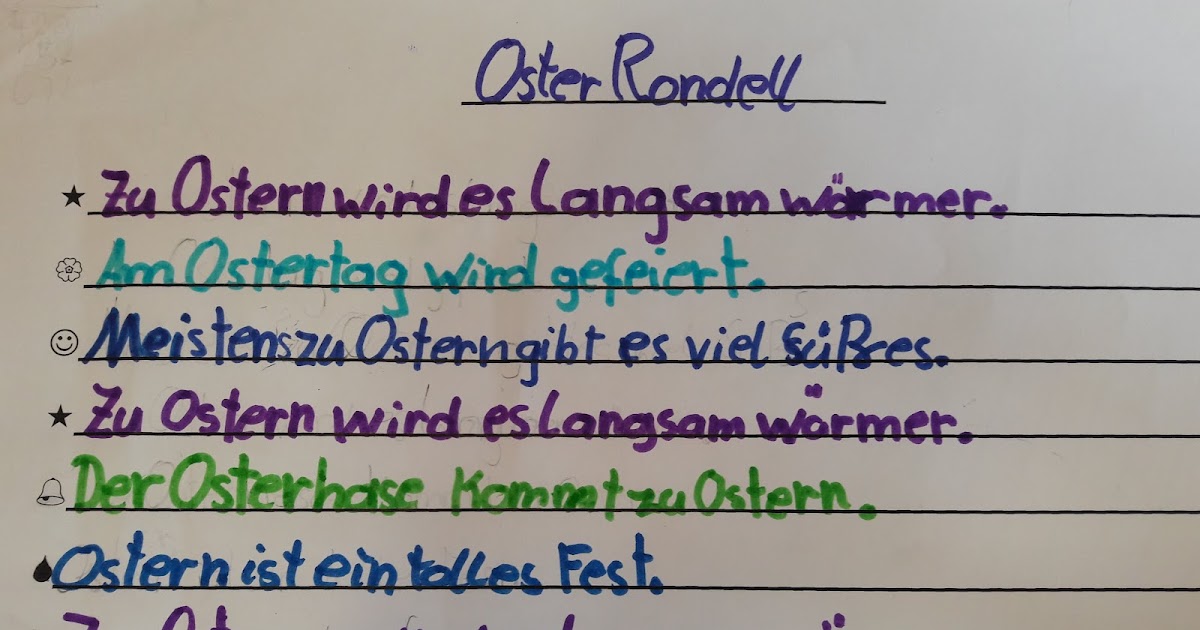 Oster Rondell
Zu Ostern wird es Langsam wärmer.
Am Ostertag wird gefeiert.
Meistens zu Ostern gibt es viel süßes.
Zu Ostern wird es Langsam wärmer.
Der Osterhase kommt zu Ostern.
Ostern ist ein tolles Fest.